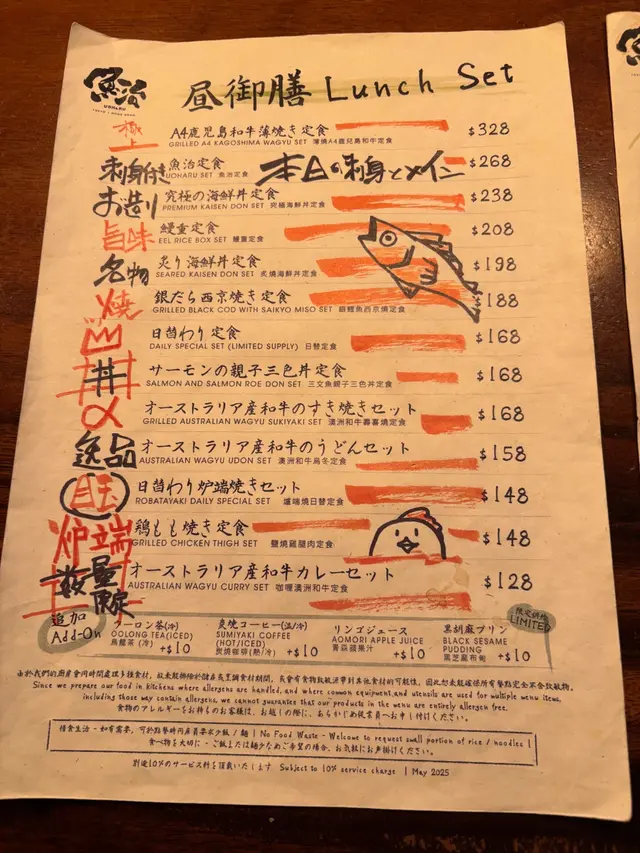 魚治
UOHARU
昼御膳 Lunch Set
極上
A4鹿児島和牛薄焼き定食 $328
GRILLED A4 KAGOSHIMA WAGYU SET 薄燒A4鹿兒島和牛定食
刺身付き
魚治定食 本日の刺身とメイン $268
UOHARU SET 魚治定食
お造り
究極の海鮮丼定食 $238
PREMIUM KAISEN DON SET 究極海鮮丼定食
旨味
鰻重定食 $208
EEL RICE BOX SET 鰻重定食
名物
炙り海鮮丼定食 $198
SEARED KAISEN DON SET 炙燒海鮮丼定食
焼
銀だら西京焼き定食 $188
GRILLED BLACK COD WITH SAIKYO MISO SET 銀鱈魚西京燒定食
日替わり定食 $168
DAILY SPECIAL SET (LIMITED SUPPLY) 日替定食
丼
サーモンの親子三色丼定食 $168
SALMON AND SALMON ROE DON SET 三文魚親子三色丼定食
オーストラリア産和牛のすき焼きセット $168
GRILLED AUSTRALIAN WAGYU SUKIYAKI SET 澳洲和牛壽喜燒定食
逸品
オーストラリア産和牛のうどんセット $158
AUSTRALIAN WAGYU UDON SET 澳洲和牛烏冬定食
目玉
日替わり炉端焼きセット $148
ROBATAYAKI DAILY SPECIAL SET 爐端燒日替定食
炉端
鶏もも焼き定食 $148
GRILLED CHICKEN THIGH SET 鹽燒雞腿肉定食
数量限定
オーストラリア産和牛カレーセット $128
AUSTRALIAN WAGYU CURRY SET 咖喱澳洲和牛定食
追加
Add-On
ウーロン茶(冷)
OOLONG TEA(ICED)
烏龍茶 (冷)
+$10
炭焼コーヒー(温/冷)
SUMIYAKI COFFEE
(HOT/ICED)
炭燒咖啡(熱/冷)
+$10
リンゴジュース
AOMORI APPLE JUICE
青森蘋果汁
+$10
限定供応
LIMITED
黒胡麻プリン
BLACK SESAME
PUDDING
黑芝麻布甸
+$10
由於我們的廚房會同時間處理多種食材，故未能排除於儲存或烹調食材期間，或會有食物致敏源帶到其他食材的可能性，因此恕未能確保所有餐點完全不含致敏物。
Since we prepare our food in kitchens where allergens are handled, and where common equipment and utensils are used for multiple menu items,
including those may contain allergens, we cannot guarantee that our products in the menu are entirely allergen free.
食物のアレルギーをお持ちのお客様は、お越しの際に、あらかじめ従業員へお申し付けください。
惜食生活 - 如有需要，可於點餐時向店員要求少飯 / 麵 | No Food Waste - Welcome to request small portion of rice / noodles |
食べ物を大切に - ご飯または麺少なめご希望の場合、お気軽にお声掛けください。
別途10%のサービス料を頂戴いたします Subject to 10% service charge | May 2025